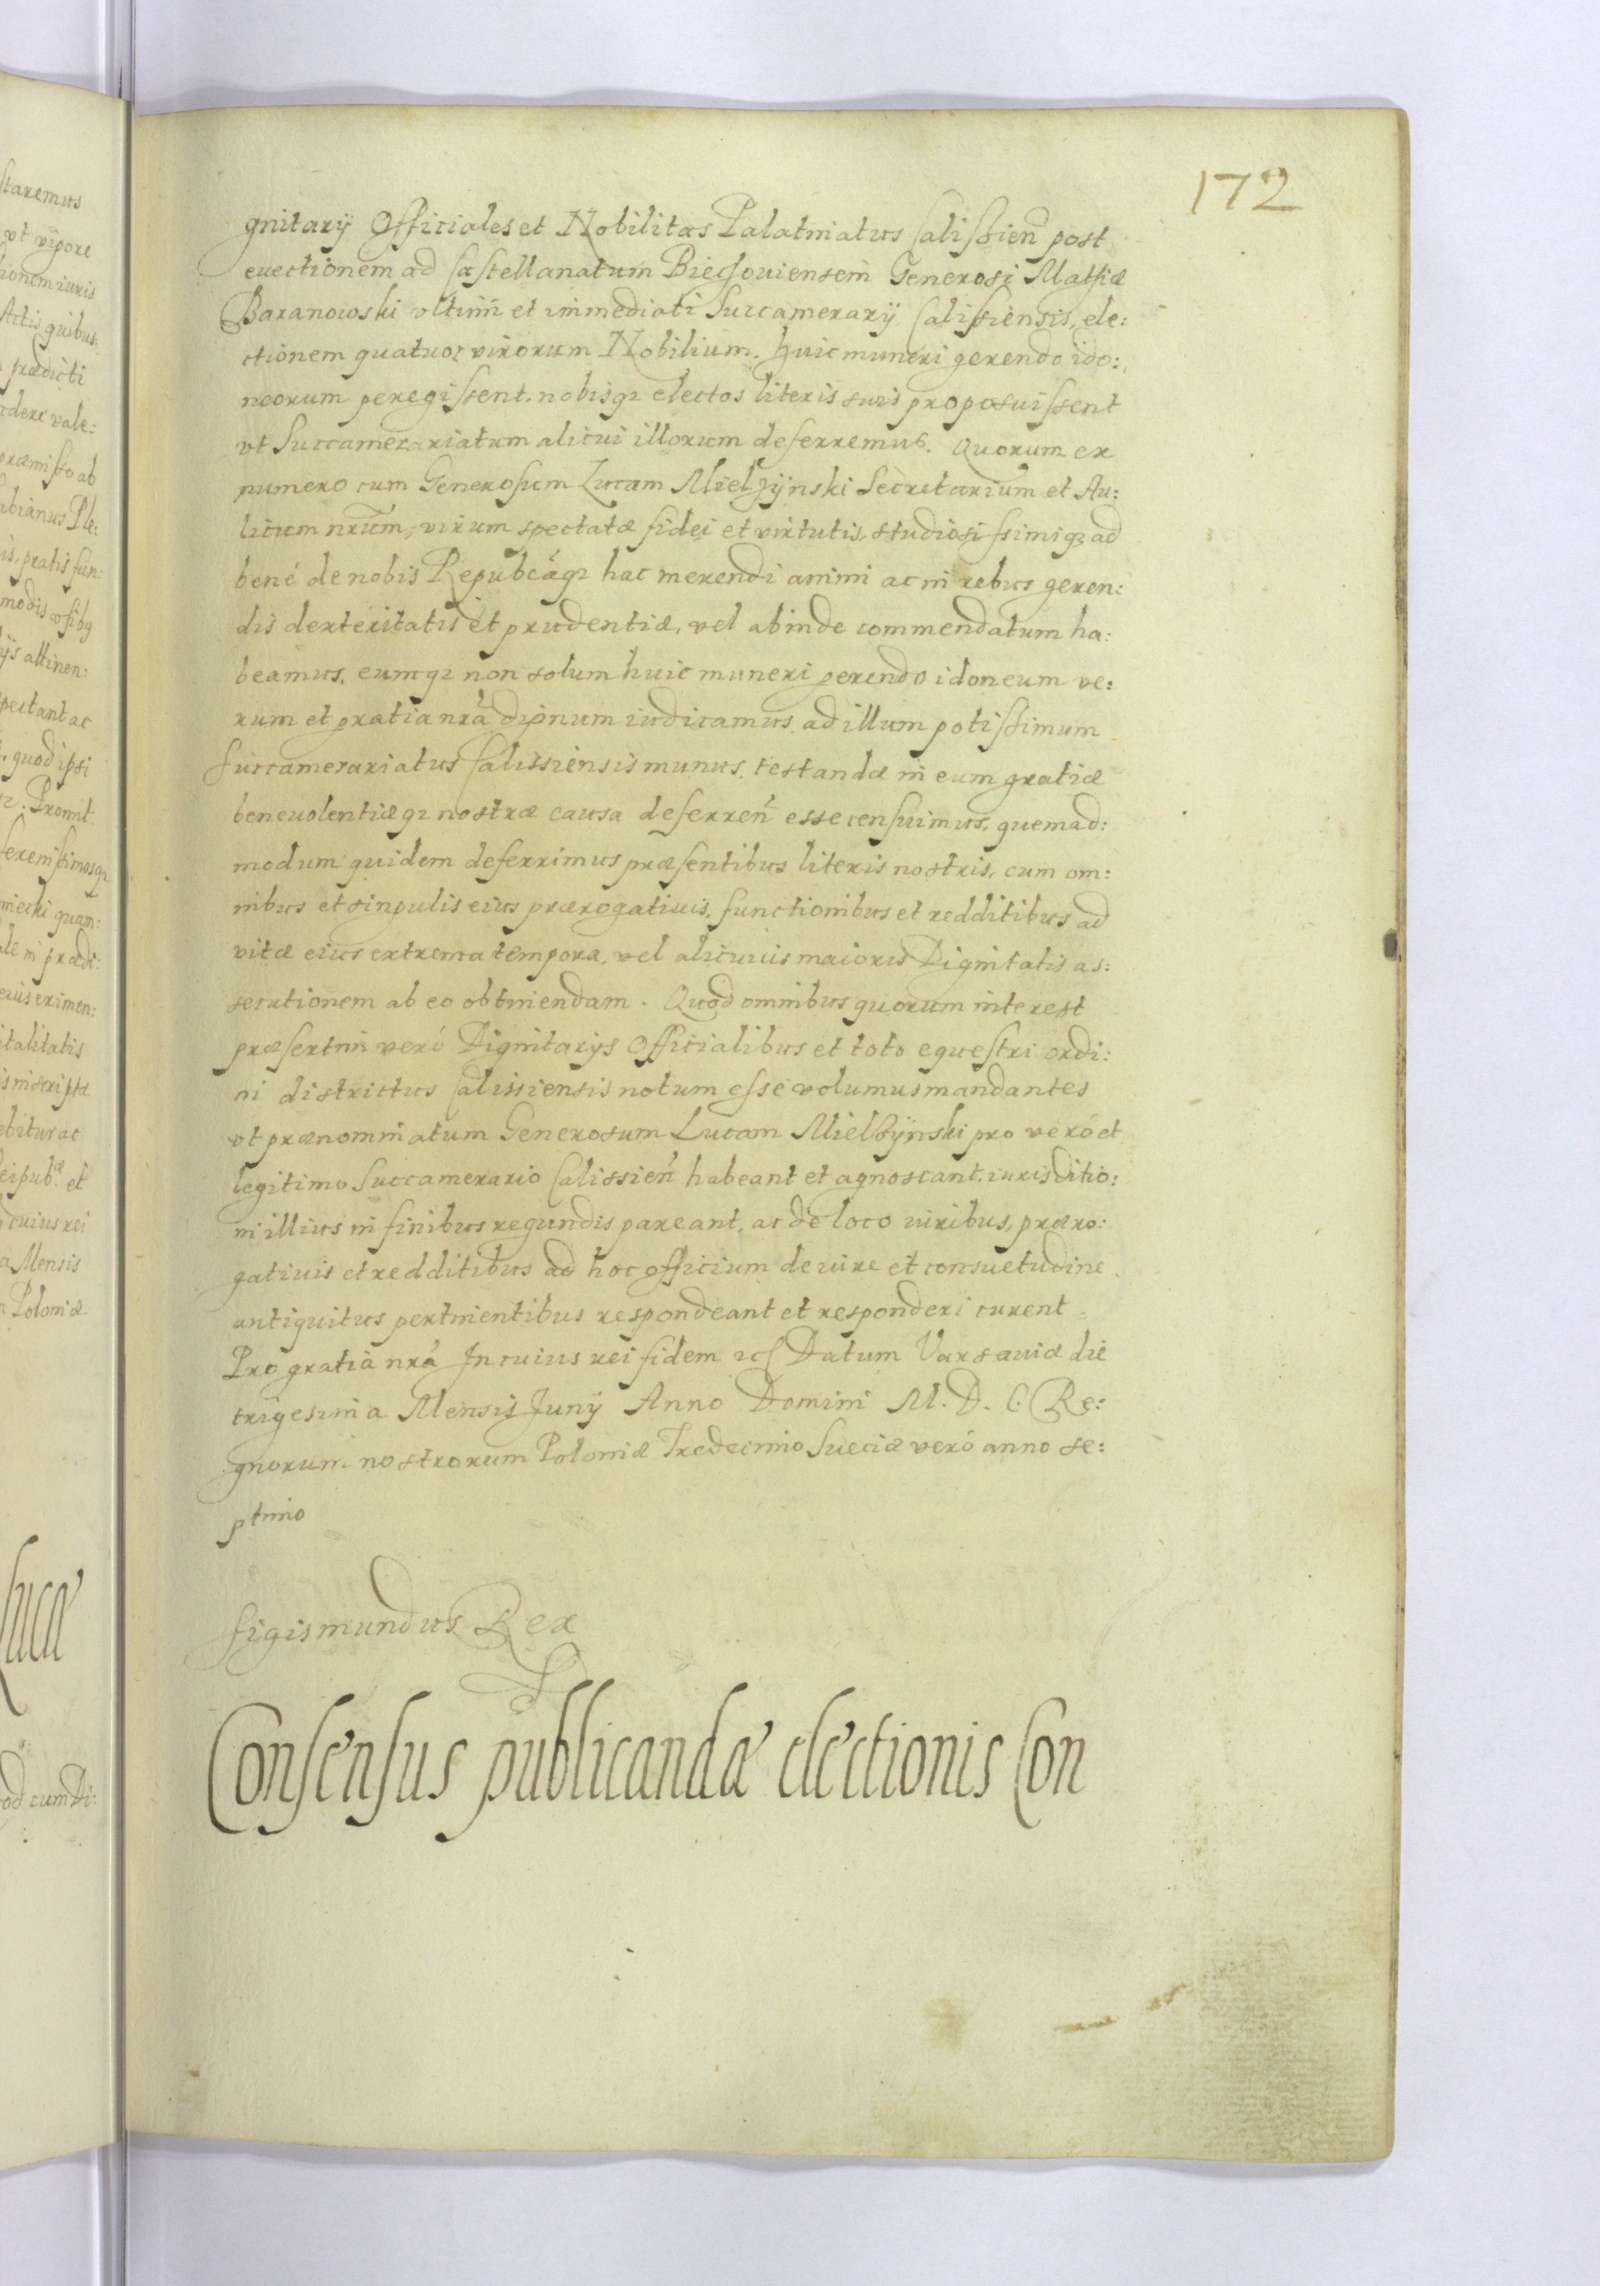 172
gnitarÿ Officiales et Nobilitas Palatinatus Calissien̄ post
euectionem ad Castellanatum Biechouiensem Generosi Mathiæ
Baranowski vltimi et immediati Succamerarÿ Calissiensis, ele:
ctionem quatuor virorum Nobilium. huic muneri gerendo ido:
neorum peregissent. nobisqꝫ electos literis suis proposuissent
vt Succamerariatum alicui illorum deferremus. Quorum ex
numero cum Generosum Lucam Mielzÿnski Secretarium et Au:
licum nrūm, virum spectatæ fidei et virtutis, studiosissimiqꝫ ad
bené de nobis Repubcáqꝫ hac merendi animi ac in rebus geren:
dis dexteritatis et prudentiæ, vel abinde commendatum ha:
beamus. eumqꝫ non solum huic muneri gerendo idoneum ve:
rum et gratia nrâ dignum iudicamus. ad illum potissimum
Succamerariatus Calissiensis munus. testandæ in eum gratiæ
beneuolentiæqꝫ nostræ causa deferren̄ esse censuimus, quemad:
modum quidem deferrimus præsentibus literis nostris, cum om:
nibus et singulis eius prærogatiuis, functionibus et redditibus ad
vitæ eius extrema tempora, vel alicuius maioris Dignitatis as:
secutionem ab eo obtinendam. Quod omnibus quorum interest
præsertim veró Dignitarÿs Officialibus et toto equestri ordi:
ni districtus Calissiensis notum esse volumus mandantes
vt prænominatum Generosum Lucam Mielzÿnski pro veró et
legitimo Succamerario Calissien̄ habeant et agnoscant. iurisditio:
ni illius in finibus regundis pareant, ac de loco iuribus, præro:
gatiuis et redditibus ad hoc officium de iure et consuetudine
antiquitus pertinentibus respondeant et responderi curent
Pro gratia nrâ In cuius rei fidem Datum Varsauiæ die
trigesima Mensis Junÿ Anno Domini M. D. C. Re:
gnorum nostrorum Poloniæ Tredecimo Sueciæ veró anno se:
ptimo
Sigismundus Rex
Consensus publicandæ electionis Con